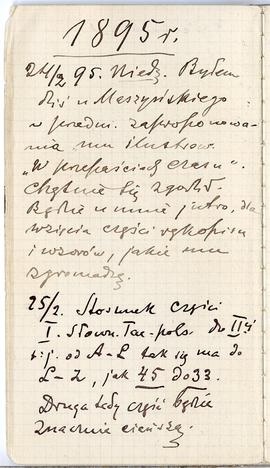 1895 r.
24/2 95. Niedz. Byłem
dziś u Meszyńskiego
w przedm. zaproponowa-
nia mu ilustrow.
„W przepaściach czasu".
Chętnie się zgodził.
Będzie u mnie jutro, dla
wzięcia części rękopisu
i wzorów, jakie mu
zgromadzę.
25/2. Stosunek części
I. Słown. Łac-pols. do II-ej
t.j. od A-L tak się ma do
L-Z, jak 45 do 33.
Druga tedy część będzie
znacznie cieńszą.